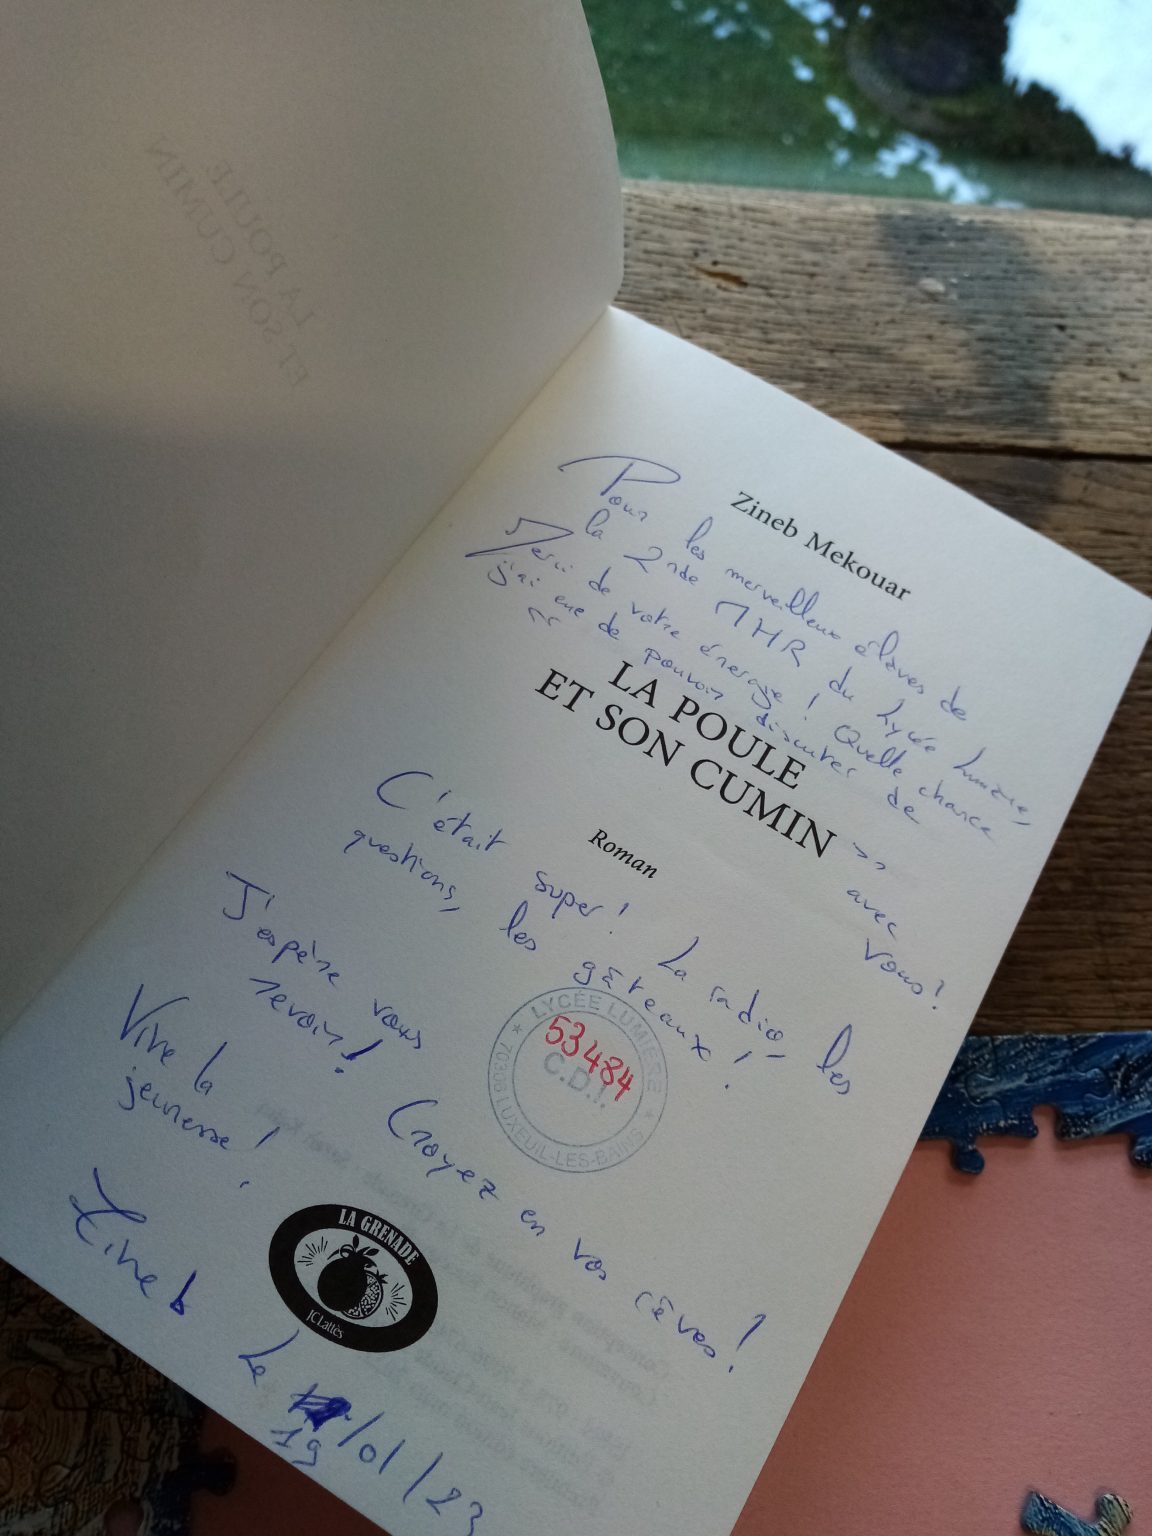 LA POULE
ET SON CUMIN
Zineb Mekouar
Pour les merveilleux élèves de
la 2nde MHR du Lycée Lumière,
Merci de votre énergie ! Quelle chance
j'ai eue de pouvoir discuter de
«
LA POULE
ET SON CUMIN
» avec vous !
Roman
C'était super ! La radio, les
questions, les gâteaux !
J'espère vous
revoir !
LYCÉE LUMIÈRE
53484
C.D.I.
70306 LUXEUIL-LES-BAINS
Croyez en vos rêves !
Vive la
jeunesse !
Zineb
LA GRENADE
JC Lattès
Le 19/01/23